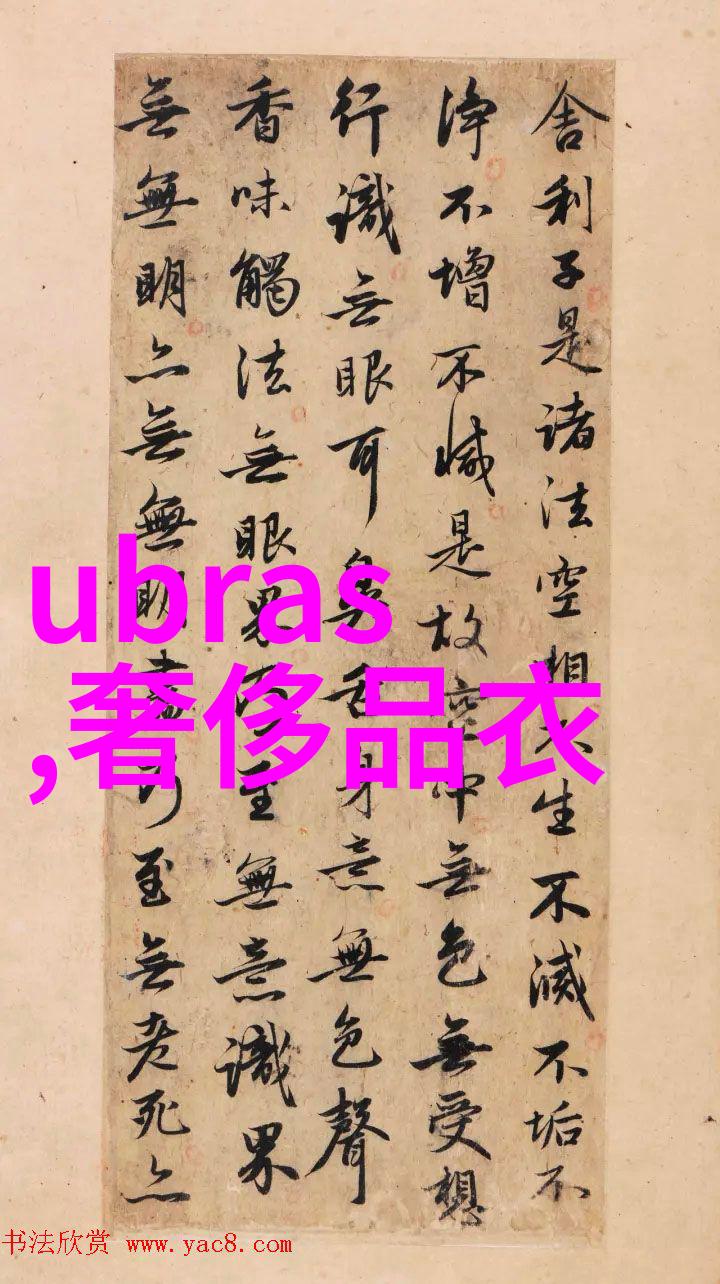 舍利子是諸法空相不生不滅不垢不
淨不增不減是故空中無色無受想
行識無眼耳鼻舌身意無色聲
香味觸法無眼界乃至無意識界
無無明亦無無明盡乃至無老死亦
ubras
,奢侈品衣
书法欣赏 www.yac8.com